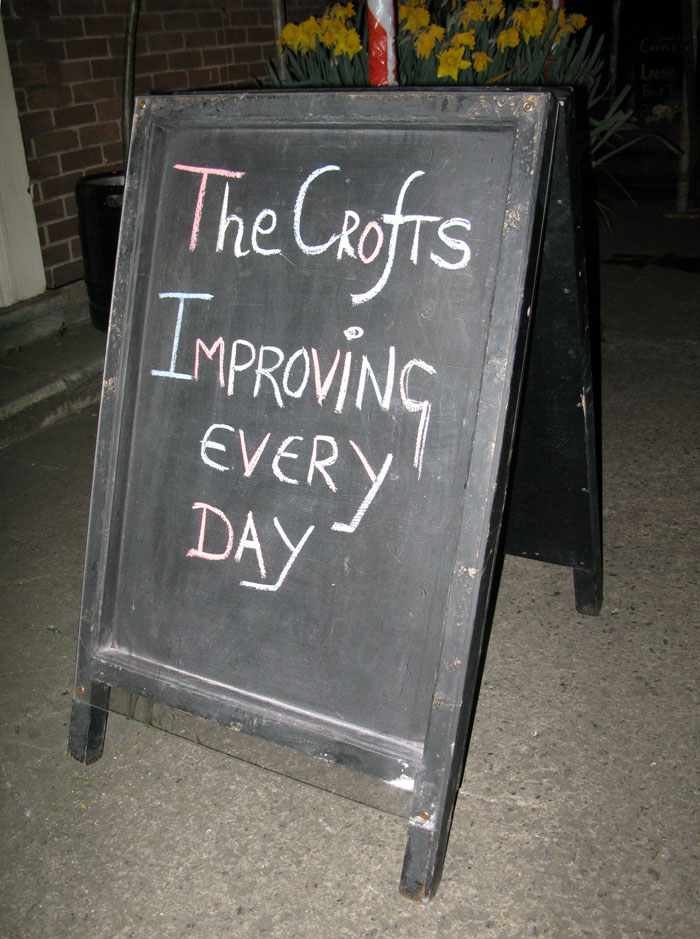 The Crofts
Improving
EVERY
DAY